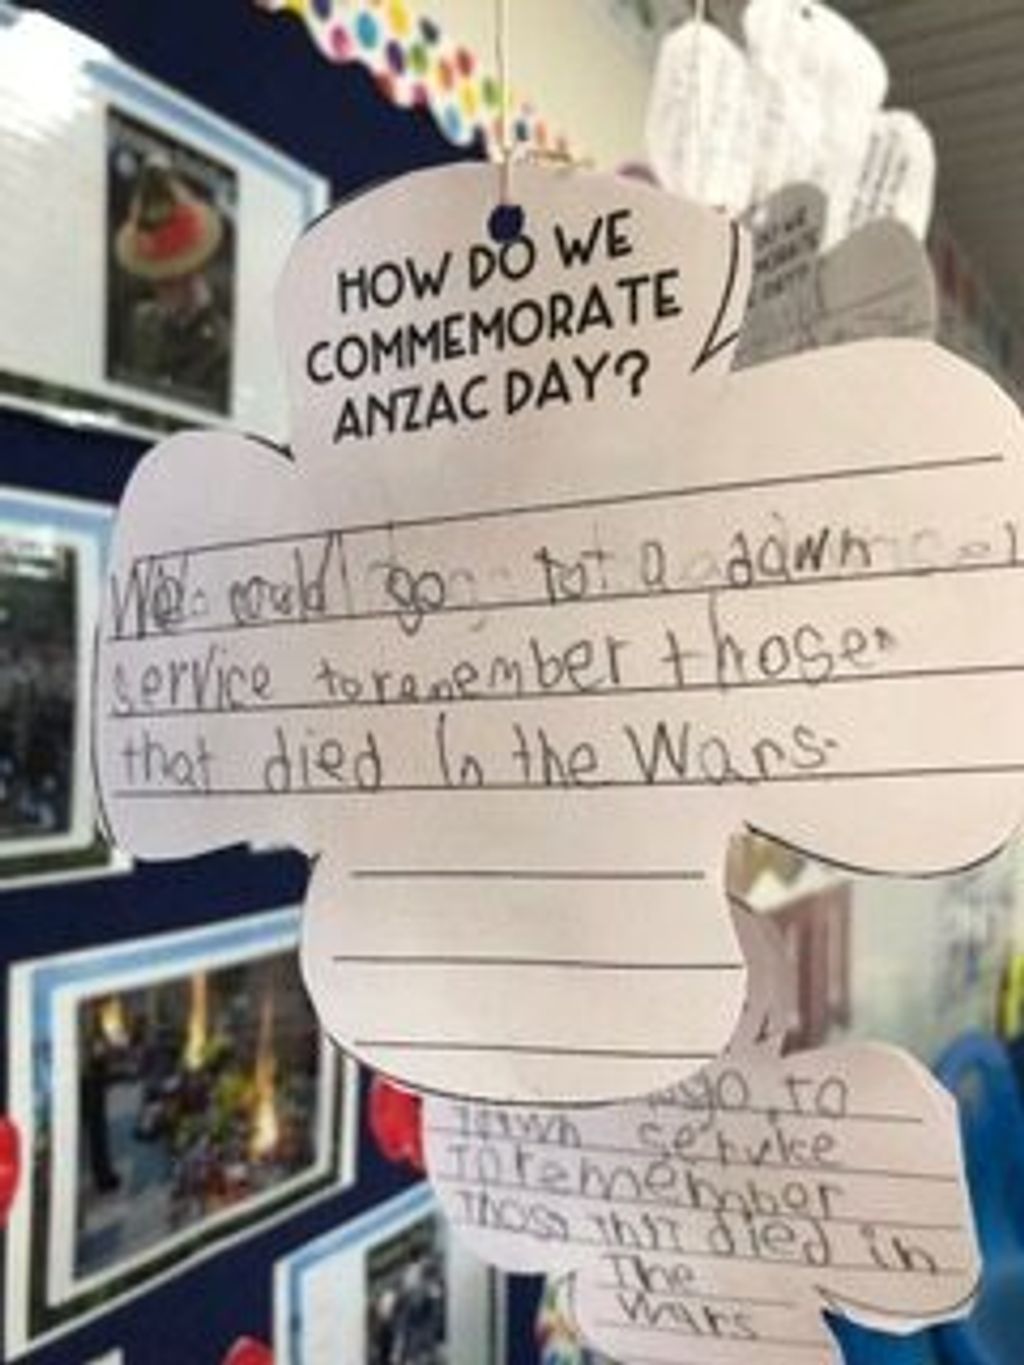 HOW DO WE
COMMEMORATE
ANZAC DAY?
We could go to a dawn
service to remember those
that died in the Wars.
go to
dawn service
to remember
those that died in
the
wars